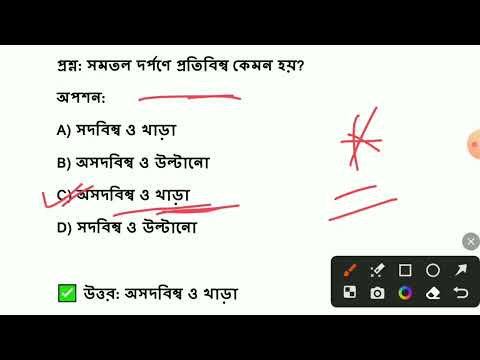 প্রশ্ন: সমতল দর্পণে প্রতিবিম্ব কেমন হয়?
অপশন:
A) সদবিম্ব ও খাড়া
B) অসদবিম্ব ও উল্টানো
C) অসদবিম্ব ও খাড়া
D) সদবিম্ব ও উল্টানো
✅ উত্তর: অসদবিম্ব ও খাড়া